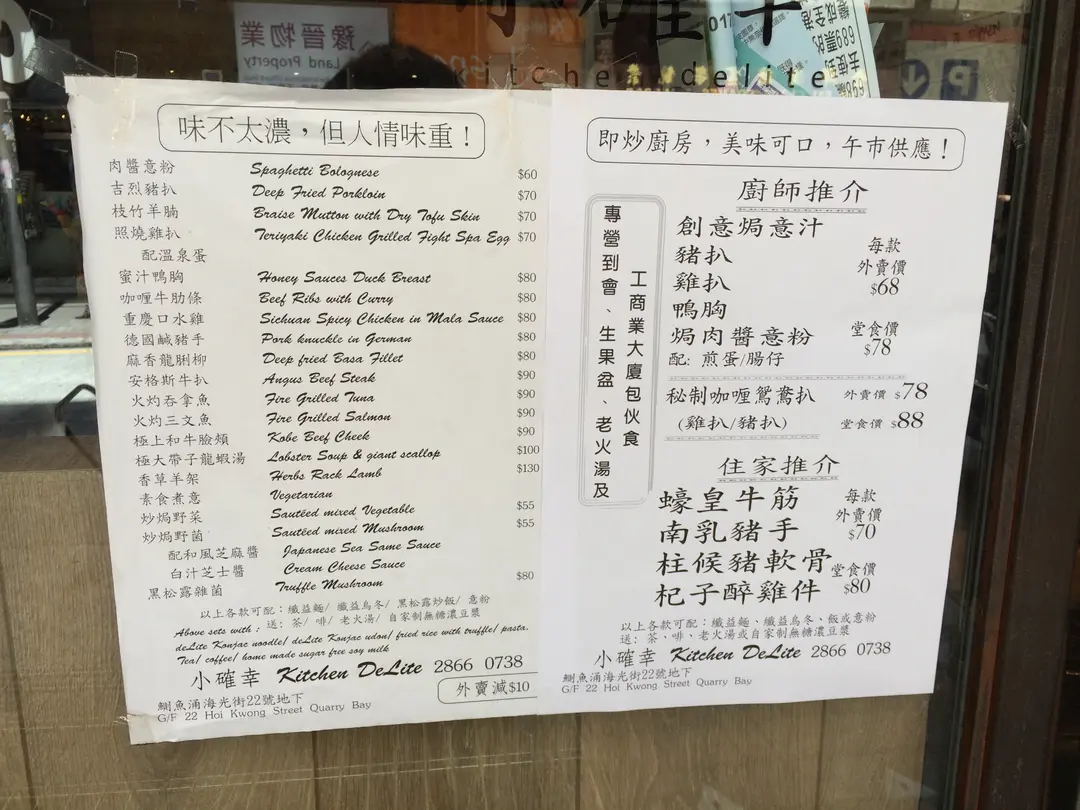 豫晉物業
Land Property
kitchen delite
味不太濃，但人情味重！
肉醬意粉 Spaghetti Bolognese $60
吉烈豬扒 Deep Fried Porkloin $70
枝竹羊腩 Braise Mutton with Dry Tofu Skin $70
照燒雞扒 Teriyaki Chicken Grilled Fight Spa Egg $70
配溫泉蛋
蜜汁鴨胸 Honey Sauces Duck Breast $80
咖喱牛肋條 Beef Ribs with Curry $80
重慶口水雞 Sichuan Spicy Chicken in Mala Sauce $80
德國鹹豬手 Pork knuckle in German $80
麻香龍脷柳 Deep fried Basa Fillet $80
安格斯牛扒 Angus Beef Steak $90
火灼吞拿魚 Fire Grilled Tuna $90
火灼三文魚 Fire Grilled Salmon $90
極上和牛臉頰 Kobe Beef Cheek $90
極大帶子龍蝦湯 Lobster Soup & giant scallop $100
香草羊架 Herbs Rack Lamb $130
素食煮意 Vegetarian
炒焗野菜 Sautēed mixed Vegetable $55
炒焗野菌 Sautēed mixed Mushroom $55
配和風芝麻醬 Japanese Sea Same Sauce
白汁芝士醬 Cream Cheese Sauce
黑松露雜菌 Truffle Mushroom $80
以上各款可配：纖益麵/ 纖益烏冬/ 黑松露炒飯/ 意粉
送：茶/ 啡/ 老火湯/ 自家制無糖濃豆漿
Above sets with :
deLite Konjac noodle/ deLite Konjac udon/ fried rice with truffle/ pasta.
Tea/ coffee/ home made sugar free soy milk
小確幸 Kitchen DeLite 2866 0738
外賣減$10
鰂魚涌海光街22號地下
G/F 22 Hoi Kwong Street Quarry Bay
即炒廚房，美味可口，午市供應！
專營到會、生果盆、老火湯及
工商業大廈包伙食
廚師推介
創意焗意汁
豬扒
雞扒
鴨胸
焗肉醬意粉
配: 煎蛋/腸仔
每款
外賣價
$68
堂食價
$78
秘制咖喱鴛鴦扒 外賣價 $78
(雞扒/豬扒) 堂食價 $88
住家推介
蠔皇牛筋
南乳豬手
柱候豬軟骨
杞子醉雞件
每款
外賣價
$70
堂食價
$80
以上各款可配：纖益麵、纖益烏冬、飯或意粉
送: 茶、啡、老火湯或自家制無糖濃豆漿
小確幸 Kitchen DeLite 2866 0738
鰂魚涌海光街22號地下
G/F 22 Hoi Kwong Street Quarry Bay